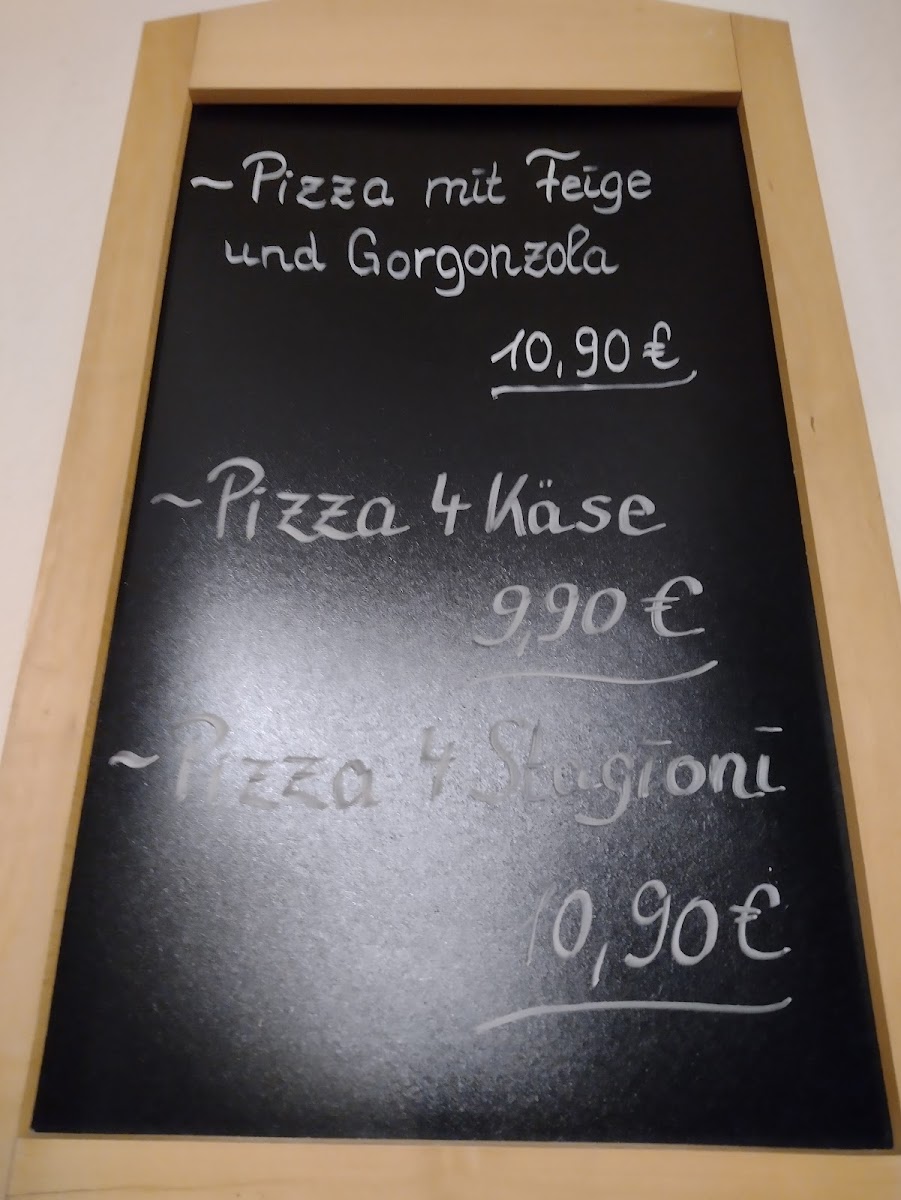 ~Pizza mit Feige
und Gorgonzola
10,90 €
~Pizza 4 Käse
9,90 €
~Pizza 4 Stagioni
10,90 €